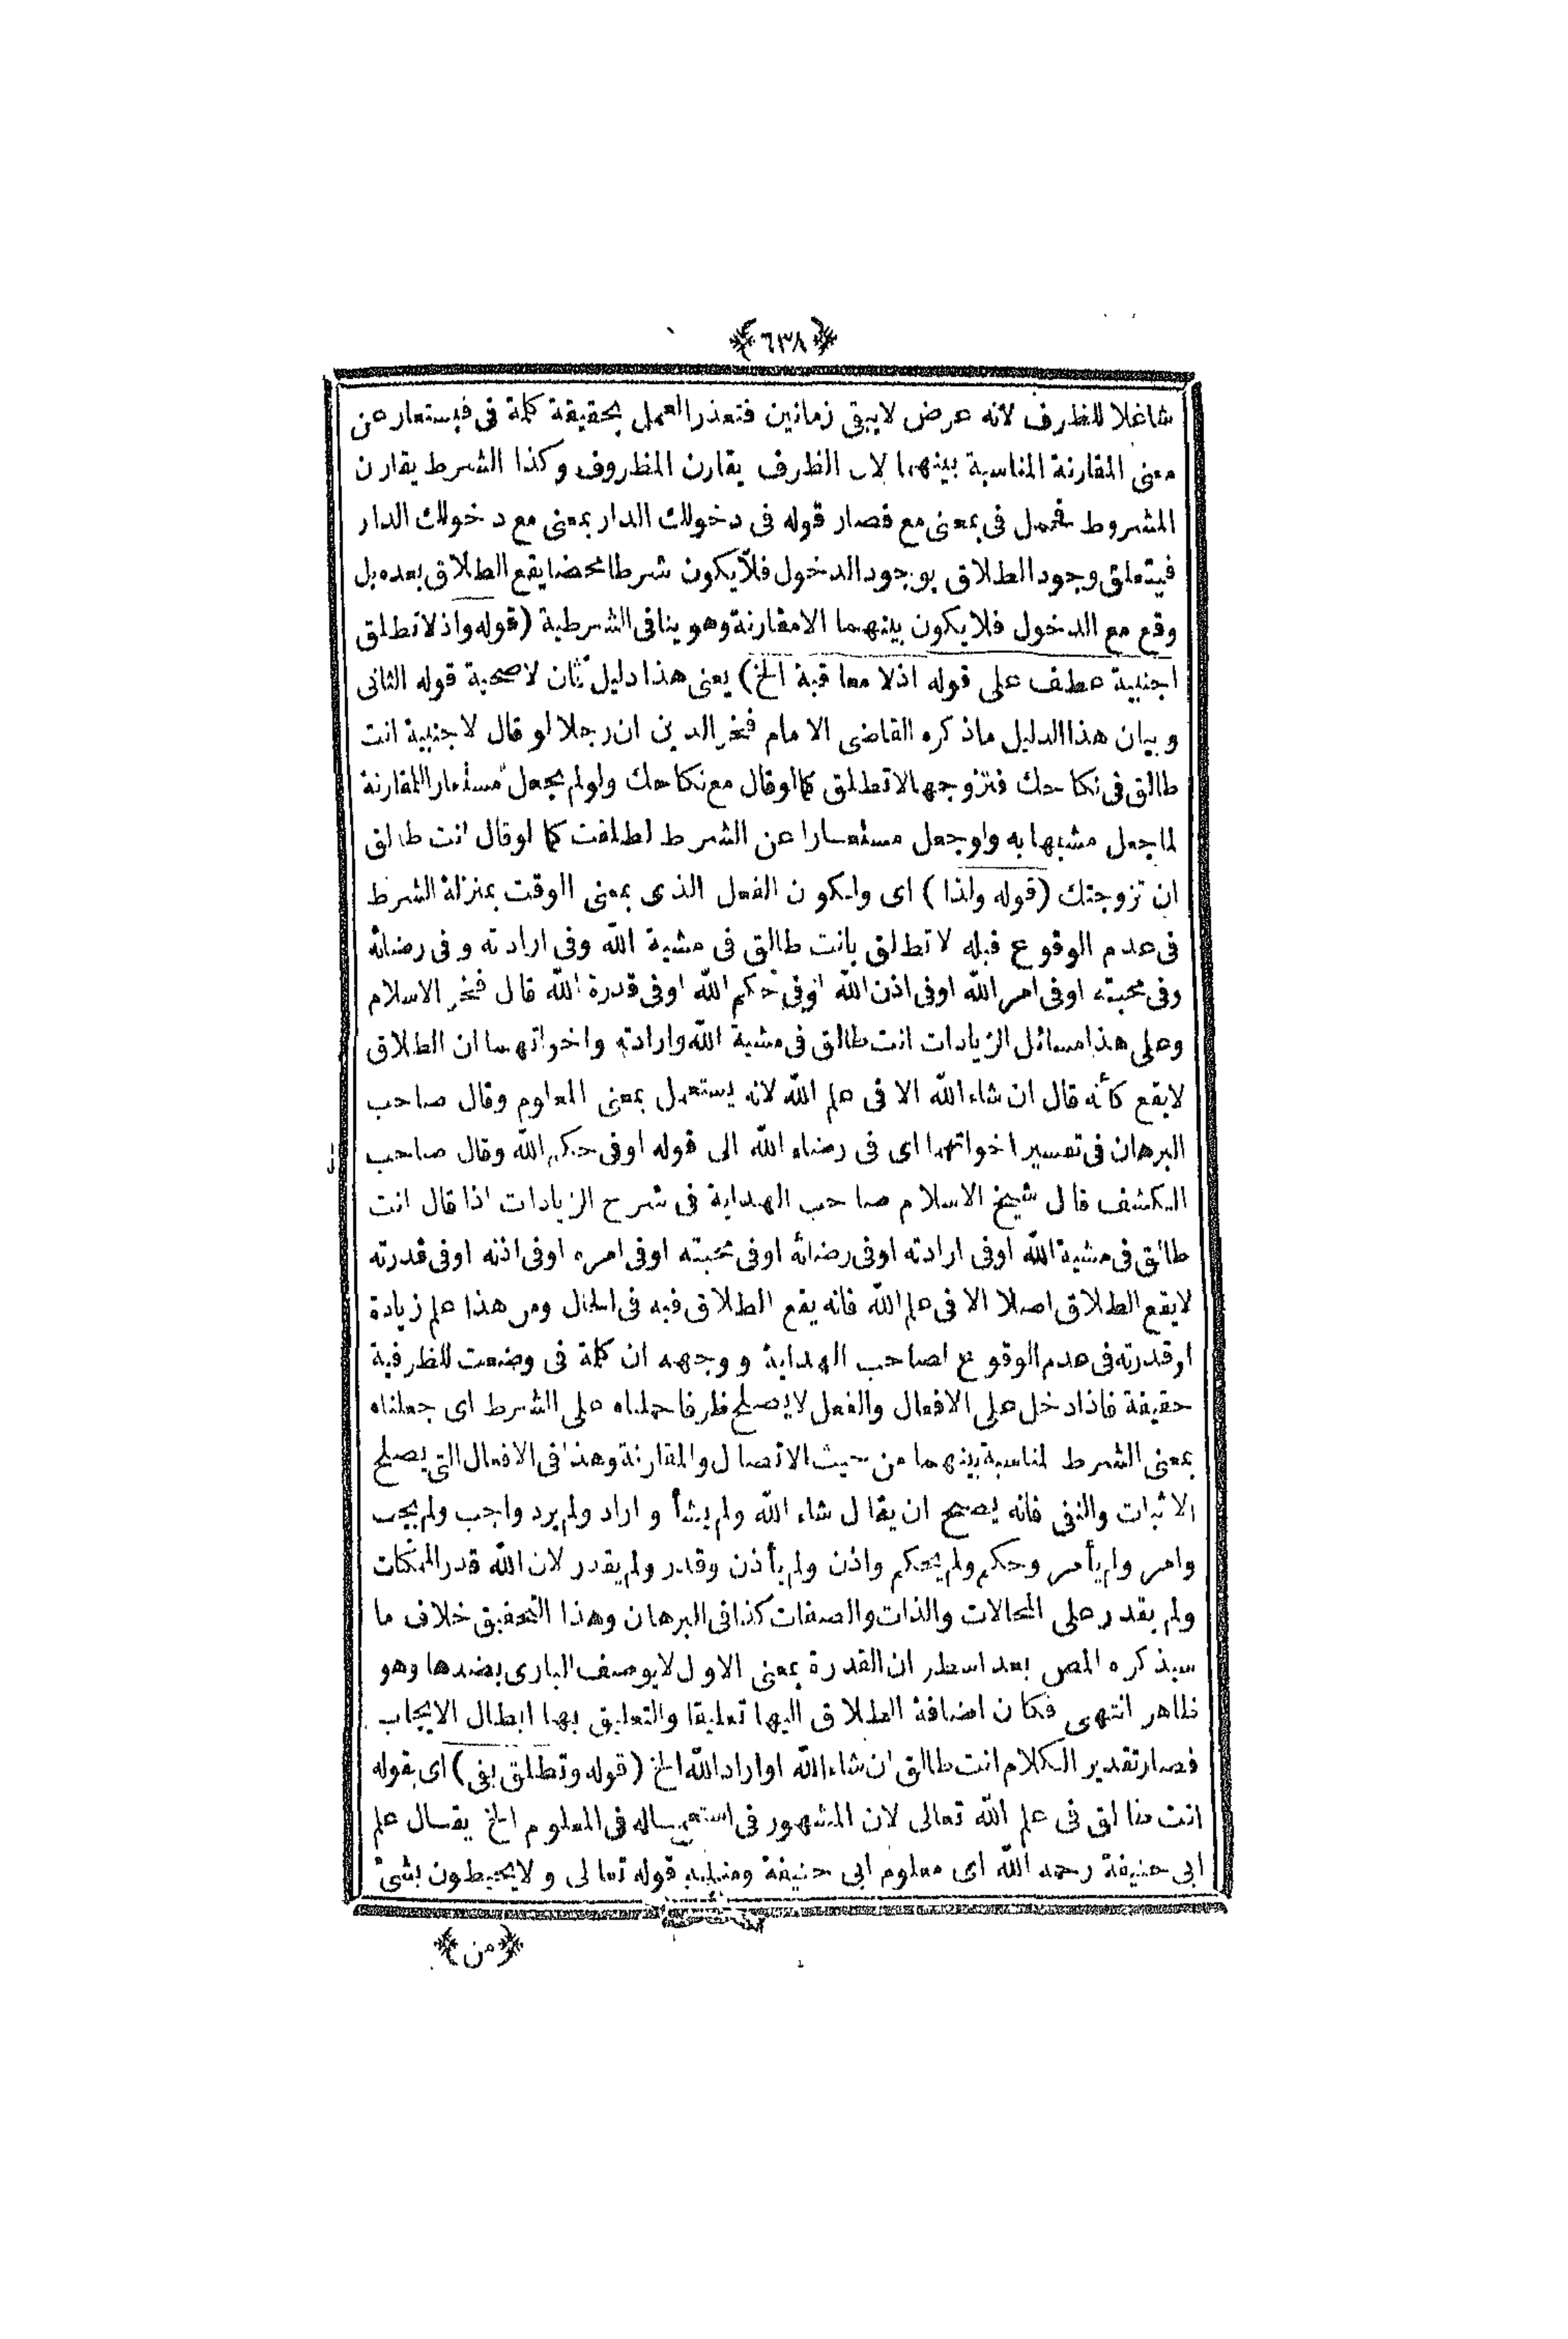 ﴿٦٣٨﴾
شاغلا للظرف لانه عرض لايبقى زمانين فتعذر العمل بحقيقة كلمة فى فيستعار عن
معنى المقارنة المناسبة بينهما لان الظرف يقارن المظروف وكذا الشرط يقارن
المشروط فحمل فى بمعنى مع فصار قوله فى دخولك الدار بمعنى مع دخولك الدار
فيتعلق وجود الطلاق بوجود الدخول فلا يكون شرطا محضا يقع الطلاق بعده بل
وقع مع الدخول فلا يكون بينهما الا مقارنة وهو ينافى الشرطية (قوله واذ لا تطلق
اجنبية عطف على قوله اذلا معاقبة الخ) يعنى هذا دليل ثان لاصحية قوله الثانى
وبيان هذا الدليل ماذكره القاضى الامام فخر الدين ان رجلا لو قال لاجنبية انت
طالق فى نكاحك فتزوجها لاتطلق كما لوقال مع نكاحك ولولم يجعل مستعار المقارنة
لما جعل مشبها به ولوجعل مستعارا عن الشرط لطلقت كما لوقال انت طالق
ان تزوجتك (قوله ولذا) اى ولكون الفعل الذى بمعنى الوقت بمنزلة الشرط
فى عدم الوقوع قبله لاتطلق بانت طالق فى مشية الله وفى ارادته وفى رضائه
وفى محبته اوفى امر الله اوفى اذن الله اوفى حكم الله اوفى قدرة الله قال فخر الاسلام
وعلى هذا مسائل الزيادات انت طالق فى مشية الله وارادته واخواتهما ان الطلاق
لايقع كأنه قال ان شاء الله الا فى علم الله لانه يستعمل بمعنى المعلوم وقال صاحب
البرهان فى تفسير اخواتهما اى فى رضاء الله الى قوله اوفى حكم الله وقال صاحب
الكشف قال شيخ الاسلام صاحب الهداية فى شرح الزيادات اذا قال انت
طالق فى مشية الله اوفى ارادته اوفى رضائه اوفى محبته اوفى امره اوفى اذنه اوفى قدرته
لايقع الطلاق اصلا الا فى علم الله فانه يقع الطلاق فيه فى الحال ومن هذا علم زيادة
اوقدرته فى عدم الوقوع لصاحب الهداية ووجهه ان كلمة فى وضعت للظرفية
حقيقة فاذا دخل على الافعال والفعل لايصلح ظرفا حملناه على الشرط اى جعلناه
بمعنى الشرط لمناسبة بينهما من حيث الاتصال والمقارنة وهذا فى الافعال التى يصلح
الاثبات والنفى فانه يصح ان يقال شاء الله ولم يشأ واراد ولم يرد واحب ولم يحب
وامر ولم يأمر وحكم ولم يحكم واذن ولم يأذن وقدر ولم يقدر لان الله قدر الممكنات
ولم يقدر على المحالات والذات والصفات كذا فى البرهان وهذا التحقيق خلاف ما
سيذكره المص بعد اسطر ان القدرة بمعنى الاول لايوصف البارى بضدها وهو
ظاهر انتهى فكان اضافة الطلاق اليها تعليقا والتعليق بها ابطال الايجاب
فصار تقدير الكلام انت طالق ان شاء الله اواراد الله الخ (قوله وتطلق بفى) اى بقوله
انت طالق فى علم الله تعالى لان المشهور فى استعماله فى المعلوم الخ يقال علم
ابى حنيفة رحمه الله اى معلوم ابى حنيفة ومنه قوله تعالى ولايحيطون بشئ
﴿من﴾